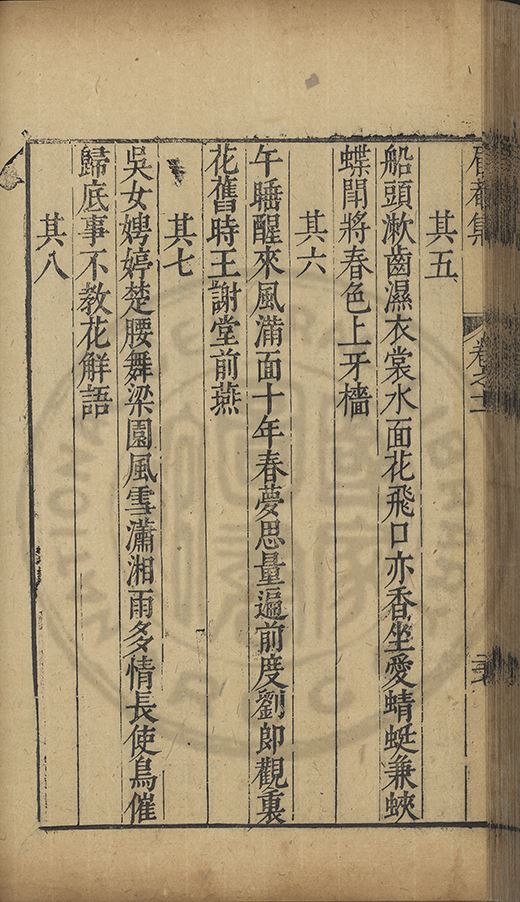 其五
船頭漱齒濕衣裳水面花飛口亦香坐愛蜻蜓兼蛺
蝶閒將春色上牙檣
其六
午睡醒來風滿面十年春夢思量遍前度劉郎觀裏
花舊時王謝堂前燕
其七
吳女娉婷楚腰舞梁園風雪瀟湘雨多情長使鳥催
歸底事不教花解語
其八